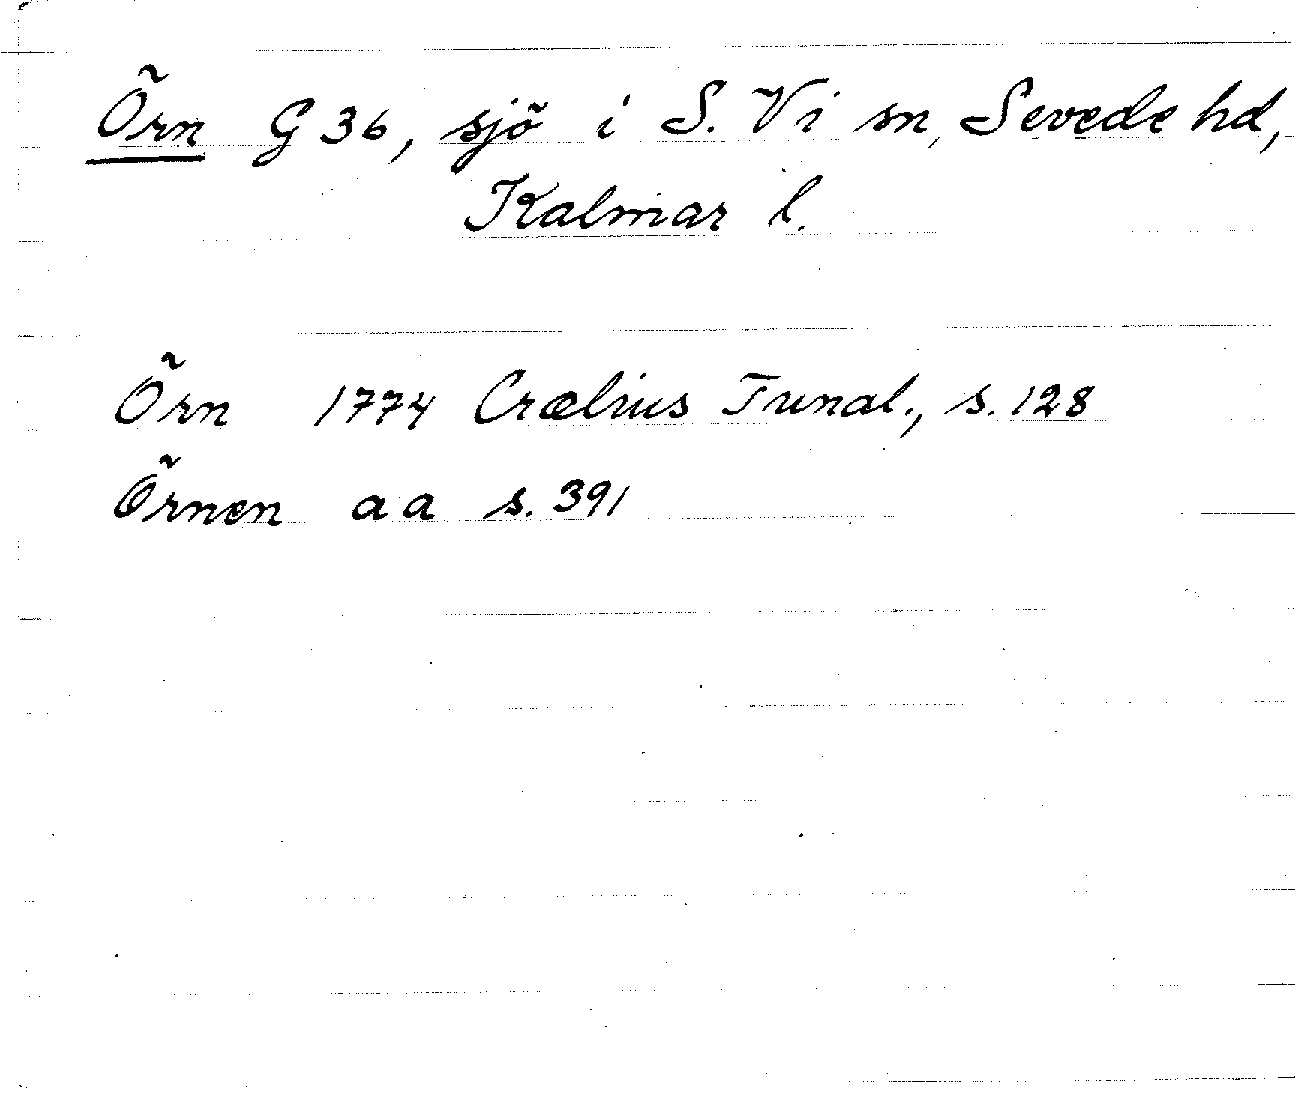 Örn G 36, sjö i S. Vi sn, Sevede hd,
Kalmar l.
Örn 1774 Crælius Tunal., s. 128
Örnen a a s. 391